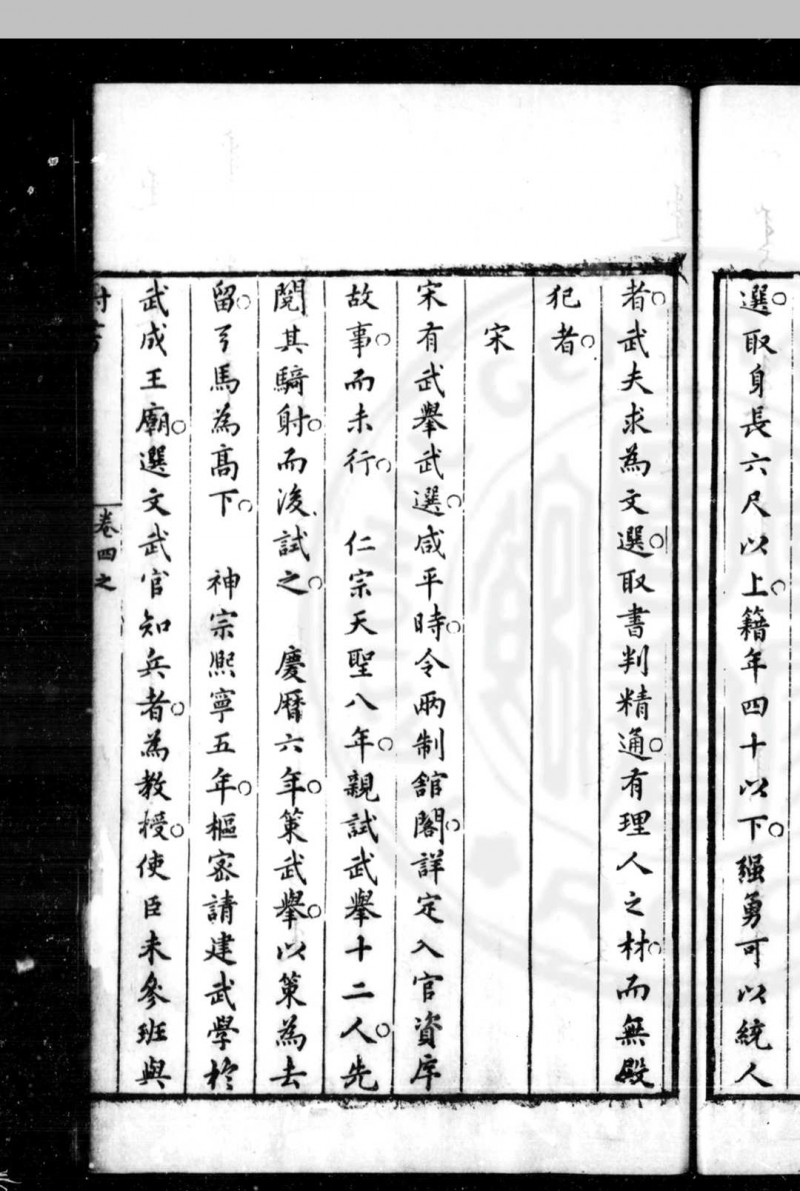 選取身長六尺以上籍年四十以下強勇可以統人
者武夫求為文選取書判精通有理人之材而無殿
犯者
宋
宋有武舉武選咸平時令兩制館閣詳定入官資序
故事而未行　仁宗天聖八年親試武舉十二人先
閱其騎射而後試之　慶曆六年策武舉以策為去
留弓馬為高下　神宗熙寧五年樞密請建武學於
武成王廟選文武官知兵者為教授使臣未參班與
卷四之